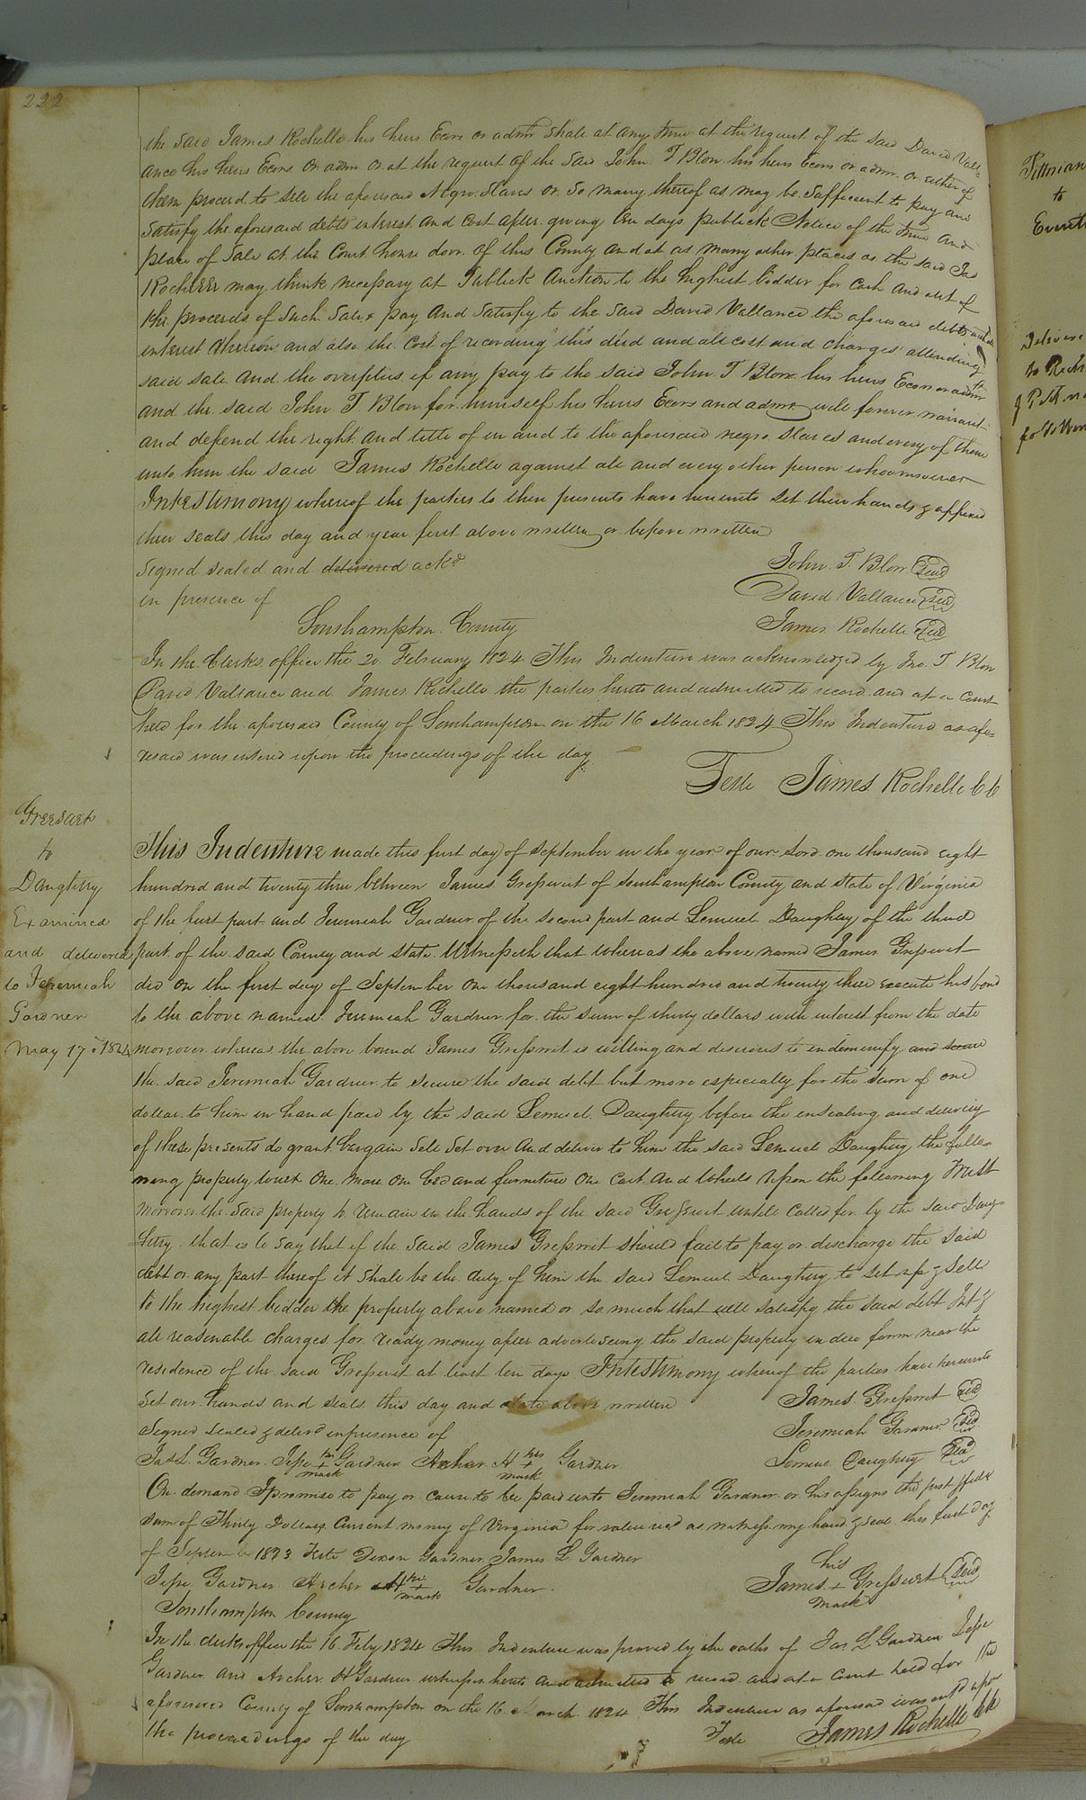 222
the said James Rochelle his heirs Exors or admr shall at any time at the request of the said David Vall-
ance his heirs Exors or admr or at the request of the said John T Blow his heirs Exors or admr or either of
them proceed to sell the aforesaid Negro Slaves or so many thereof as may be sufficient to pay and
satisfy the aforesaid debts interest and cost after giving ten days publick Notice of the time and
place of sale at the Court house door of this County and at as many other places as the said Jas
Rochelle may think necessary at Publick Auction to the highest bidder for cash and out of
the proceeds of such sales pay and satisfy to the said David Vallance the aforesaid debts and
interest thereon and also the cost of recording this deed and all cost and charges attending
said sale and the overplus if any pay to the said John T Blow his heirs Exors or admr
and the said John T Blow for himself his heirs Exors and admr will forever warrant
and defend the right and title of in and to the aforesaid negro slaves and every of them
unto him the said James Rochelle against all and every other person whomsoever
In testimony whereof the parties to these presents have hereunto set their hands & affixed
their seals this day and year first above written or before written
Signed sealed and delivered ackd
John T. Blow Seal
in presence of
David Vallance Seal
James Rochelle Seal
Southampton County
In the Clerks office the 20 February 1824 This Indenture was acknowledged by Jno. T Blow
David Vallance and James Rochelle the parties hereto and admitted to record and at a Court
held for the aforesaid County of Southampton on the 16 March 1824 This Indenture as afo-
resaid was entered upon the proceedings of the day
Teste James Rochelle CC
to
Daughtry
Examined
and delivered
to Jeremiah
Gardner
May 17th 1824
This Indenture made this first day of September in the year of our Lord one thousand eight
hundred and twenty three between James Gresswit of Southampton County and state of Virginia
of the first part and Jeremiah Gardner of the second part and Lemuel Daughtry of the third
part of the said County and state Witnesseth that whereas the above named James Gresswit
did on the first day of September one thousand eight hundred and twenty three execute his bond
to the above named Jeremiah Gardner for the sum of thirty dollars with interest from the date
moreover whereas the above bound James Gresswit is willing and desirous to indemnify and secure
the said Jeremiah Gardner to secure the said debt but more especially for the sum of one
dollar to him in hand paid by the said Lemuel Daughtry before the ensealing and delivery
of these presents do grant bargain sell set over and deliver to him the said Lemuel Daughtry the follo-
wing property towit One mare one bed and furniture one cart and wheels upon the following Trust
moreover the said property to remain in the hands of the said Gresswit untill called for by the said Daug-
htry that is to say that if the said James Gresswit should fail to pay or discharge the said
debt or any part thereof it shall be the duty of him the said Lemuel Daughtry to set up & sell
to the highest bidder the property above named or so much that will satisfy the said debt Int &
all reasonable charges for ready money after advertiseing the said property in due form near the
residence of the said Gresswit at least ten days In testimony whereof the parties have hereunto
set our hands and seals this day and date above written
James Gresswit Seal
Signed sealed & deliverd in presence of
Jeremiah Gardner Seal
Jas L. Gardner Jesse his + mark Gardner Archer H his + mark Gardner
Lemuel Daughtry Seal
On demand I promise to pay or cause to be paid unto Jeremiah Gardner or his assigns the just & full
sum of Thirty Dollars Current money of Virginia for value recd as witness my hand & seal this first day
of September 1823 Teste Dixon Gardner James L Gardner
Jesse Gardner Archer H his + mark Gardner
James his + mark Gresswit Seal
Southampton County
In the clerks office the 16 Feby 1824 This Indenture was proved by the oaths of Jas L Gardner Jesse
Gardner and Archer H Gardner witnesses hereto and admitted to record and at a Court held for the
aforesaid County of Southampton on the 16 March 1824 This Indenture as aforesaid was entd upon
the proceedings of the day
Teste James Rochelle CC
to